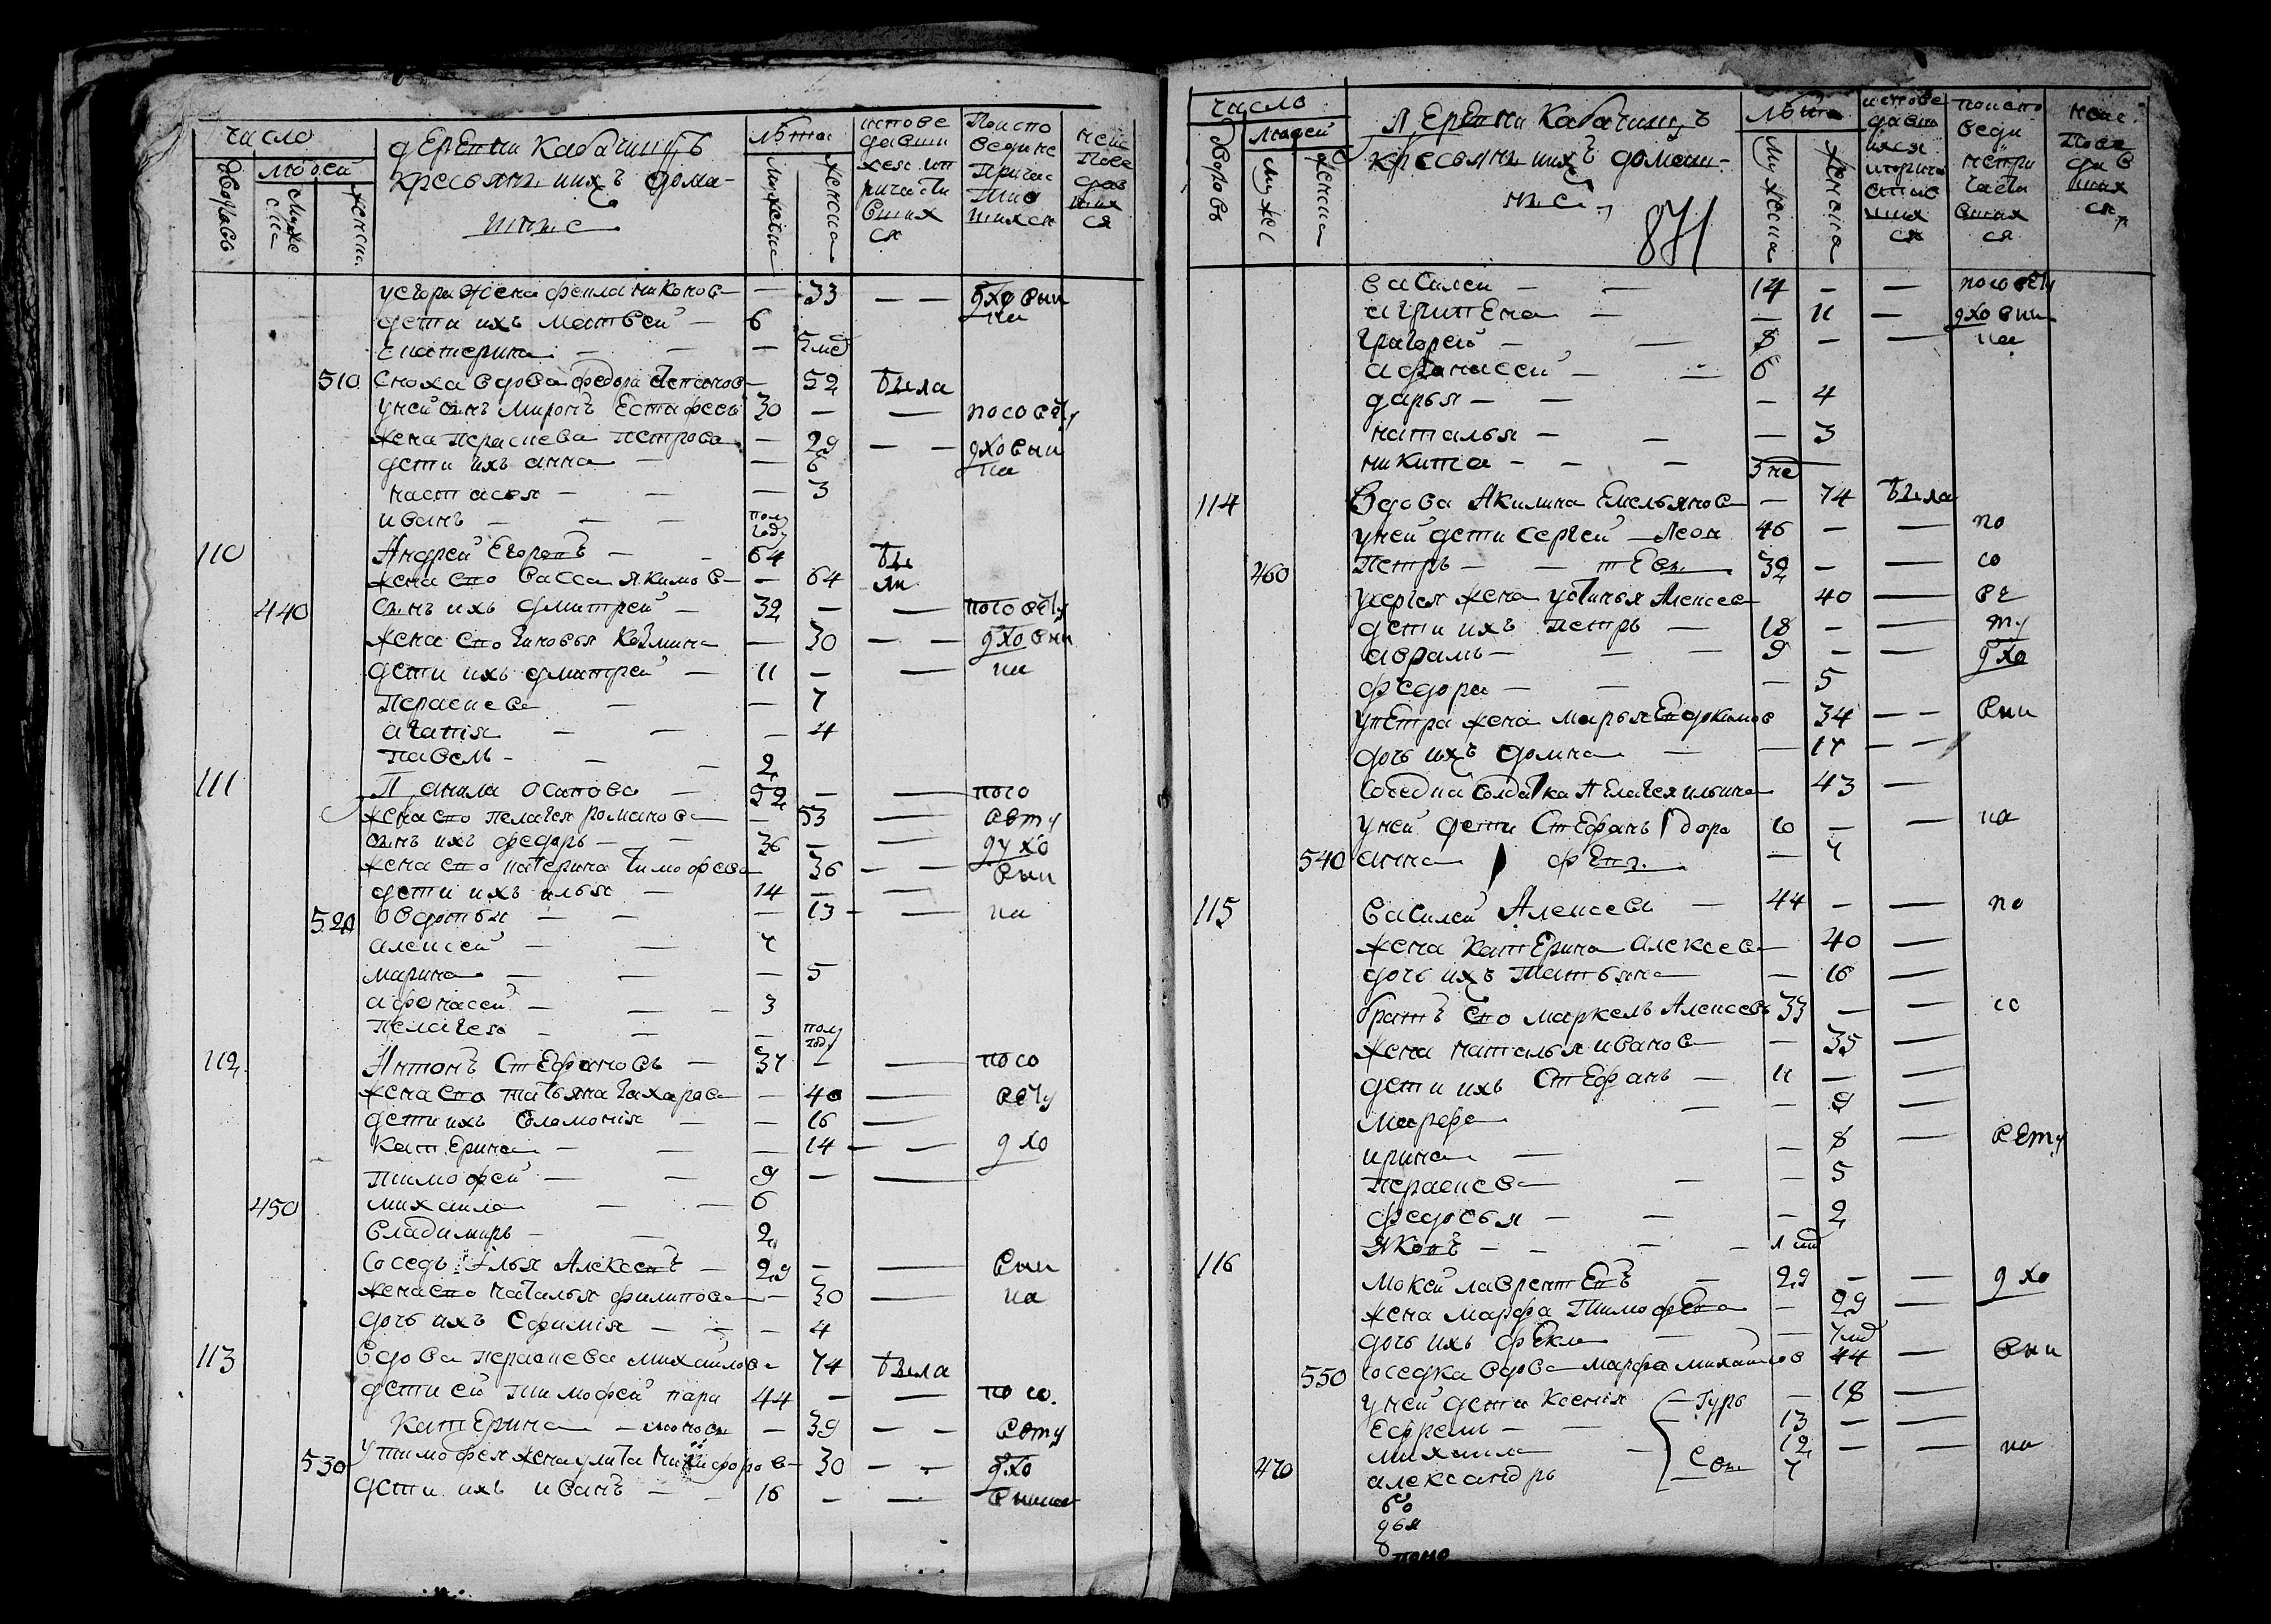 число
людей
дворовъ
мужеска
женска
деревни Кабачищъ
крестьяне и ихъ дома-
шние
лѣта
мужеска
женска
исповедавшихся и причастившихся
По исповеди не Причастившихся
не исповедавшихся
у егора жена фекла никонов — 33 — — духовни
дети ихъ Матвей — 6 ка
екатерина — — — 5 мѣ
510 Сноха вдова федора степанов — 52 была
у ней сынъ Миронъ Естафеев 30 — — по совету
жена параскева петрова — 29 — — духовни
дети ихъ анна — — 6 ка
настасья — — — 3
иванъ — — — полу году
110 Андрей Егоровъ — — 64 бы
жена его васса якимов — — 64 ли
440 сынъ ихъ дмитрей — 32 — — по совету
жена его зиновья Козмина — 30 — — духовни
дети ихъ дмитрей — 11 — — ка
параскева — — 7
агапия — — — 4
павелъ — — — 2
111 данила осипова — 52 — — по со
жена его пелагея романова — 53 — вету
сынъ ихъ федоръ — — 36 — — духо
жена его катерина тимофеева 36 — — вни
дети ихъ илья — 14 — —
520 овдотья — — — 13 — — ка
алексей — — 7
марина — — — 5
афонасей — — — 3
пелагея — — — полу году
112 Антонъ Стефановъ — 37 — — по со
жена его татьяна захарова — 40 — вету
дети ихъ соломония — — 16 —
катерина — — — 14 — — духо
тимофей — — 9 — —
450 михаила — — 6
владимиръ — — 2
соседъ илья Алексеевъ — 29 — — вни
жена его наталья филипова — 30 — ка
дочь ихъ ефимия — — — 4
113 вдова параскева михайлова 74 была
дети ей тимофей пари 44 — — по со.
катерина — моновы — 39 — — вету
530 у тимофея жена улита никифоров — 30 — — духо
дети ихъ иванъ — — 16 — — вника
число
людей
дворовъ
мужес
женска
деревни Кабачищъ
крестьяне и ихъ домаш-
ние
871
лѣта
мужеска
женска
исповедавшихся и причастившихся
по исповеди не причастившихся
не исповедавшихся
василей — — 14 — — по совету
агрипена — — 11 — духовни
григорей — — 8 — — ка
афанасей — — 6
дарья — — — 4
наталья — — — 3
никита — — — 3 не
114 Вдова Акилина Емельянов — 74 была
у ней дети сергей — Леон 46 — — по
460 Петръ — — тьевы 32 — — со
у сергея жена устинья Алексеев 40 — ве
дети ихъ петръ — 18 — — ту
аврамъ — — — 9 — — духо
федора — — — 5
у петра жена марья Евдокимов 34 — — вни
дочь ихъ домна — — 17 — —
соседка солдатка Пелагея ильина 43 —
у ней дети Стефанъ | дора 10 — — ка
540 анна ) феевы — 7
115 василей Алексеевъ — 44 — — по
жена Катерина алексеева 40 —
дочь ихъ татьяна — 16 —
братъ его маркелъ Алексеевъ 33 — — со
жена наталья иванов — — 35 —
дети ихъ Стефанъ — 11 — —
марфа — — 9 —
ирина — — 8 — вету
параскева — — 5
федосья — — — 2
яковъ — — — 1 мд
116 мокей лаврентьевъ — 29 — — духо
жена марфа тимофеева — 29 —
дочь ихъ фекла — — 7 мд
550 соседка вдова марфа михайлов 44 — вни
у ней дети ксения — Гурь — 18 —
ефремъ — — 13 — —
михаила — 12 — — ка
470 александръ евы 7
во
дья
поно